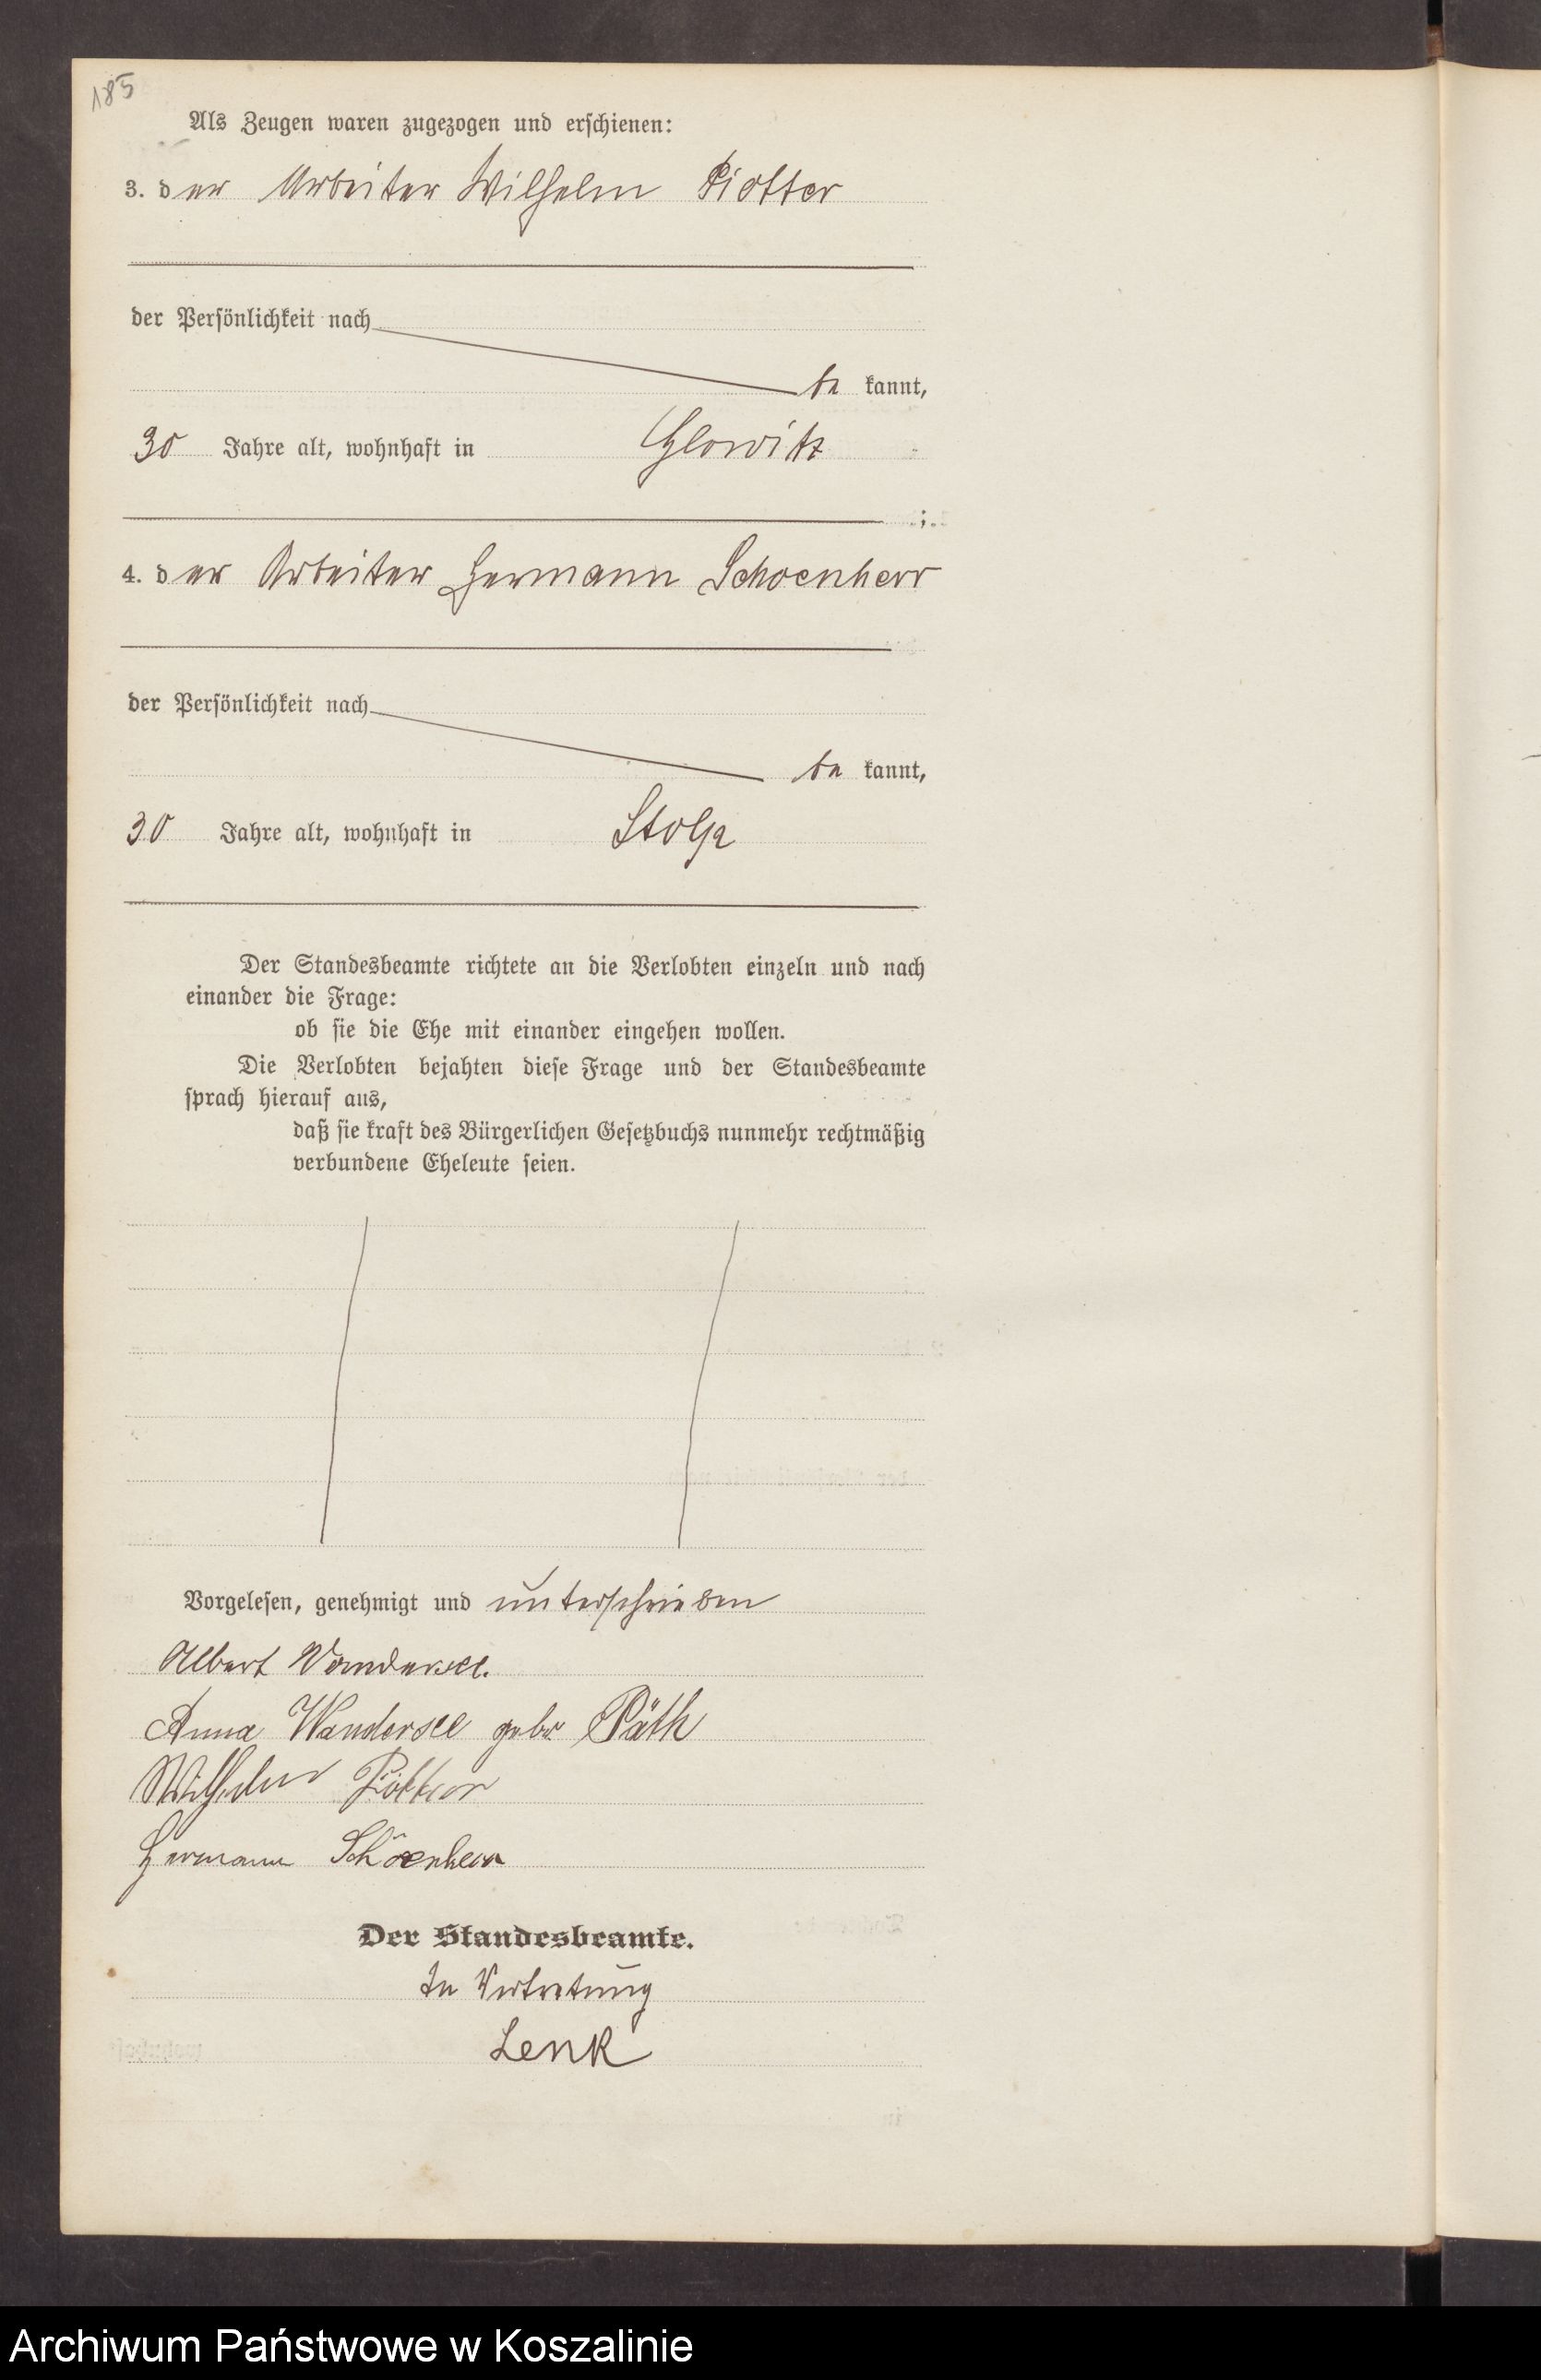 185
Als Zeugen waren zugezogen und erschienen:
3. der Arbeiter Wilhelm Piotter
der Persönlichkeit nach
be kannt,
30 Jahre alt, wohnhaft in Glowitz
;
4. der Arbeiter Hermann Schoenherr
der Persönlichkeit nach
be kannt,
30 Jahre alt, wohnhaft in Stolp
Der Standesbeamte richtete an die Verlobten einzeln und nach
einander die Frage:
ob sie die Ehe mit einander eingehen wollen.
Die Verlobten bejahten diese Frage und der Standesbeamte
sprach hierauf aus,
daß sie kraft des Bürgerlichen Gesetzbuchs nunmehr rechtmäßig
verbundene Eheleute seien.
Vorgelesen, genehmigt und unterschrieben
Albert Wandersee.
Anna Wandersee gebr Päth
Wilhelm Piotter
Hermann Schoenherr
Der Standesbeamte.
In Vertretung
Lenk
Archiwum Państwowe w Koszalinie